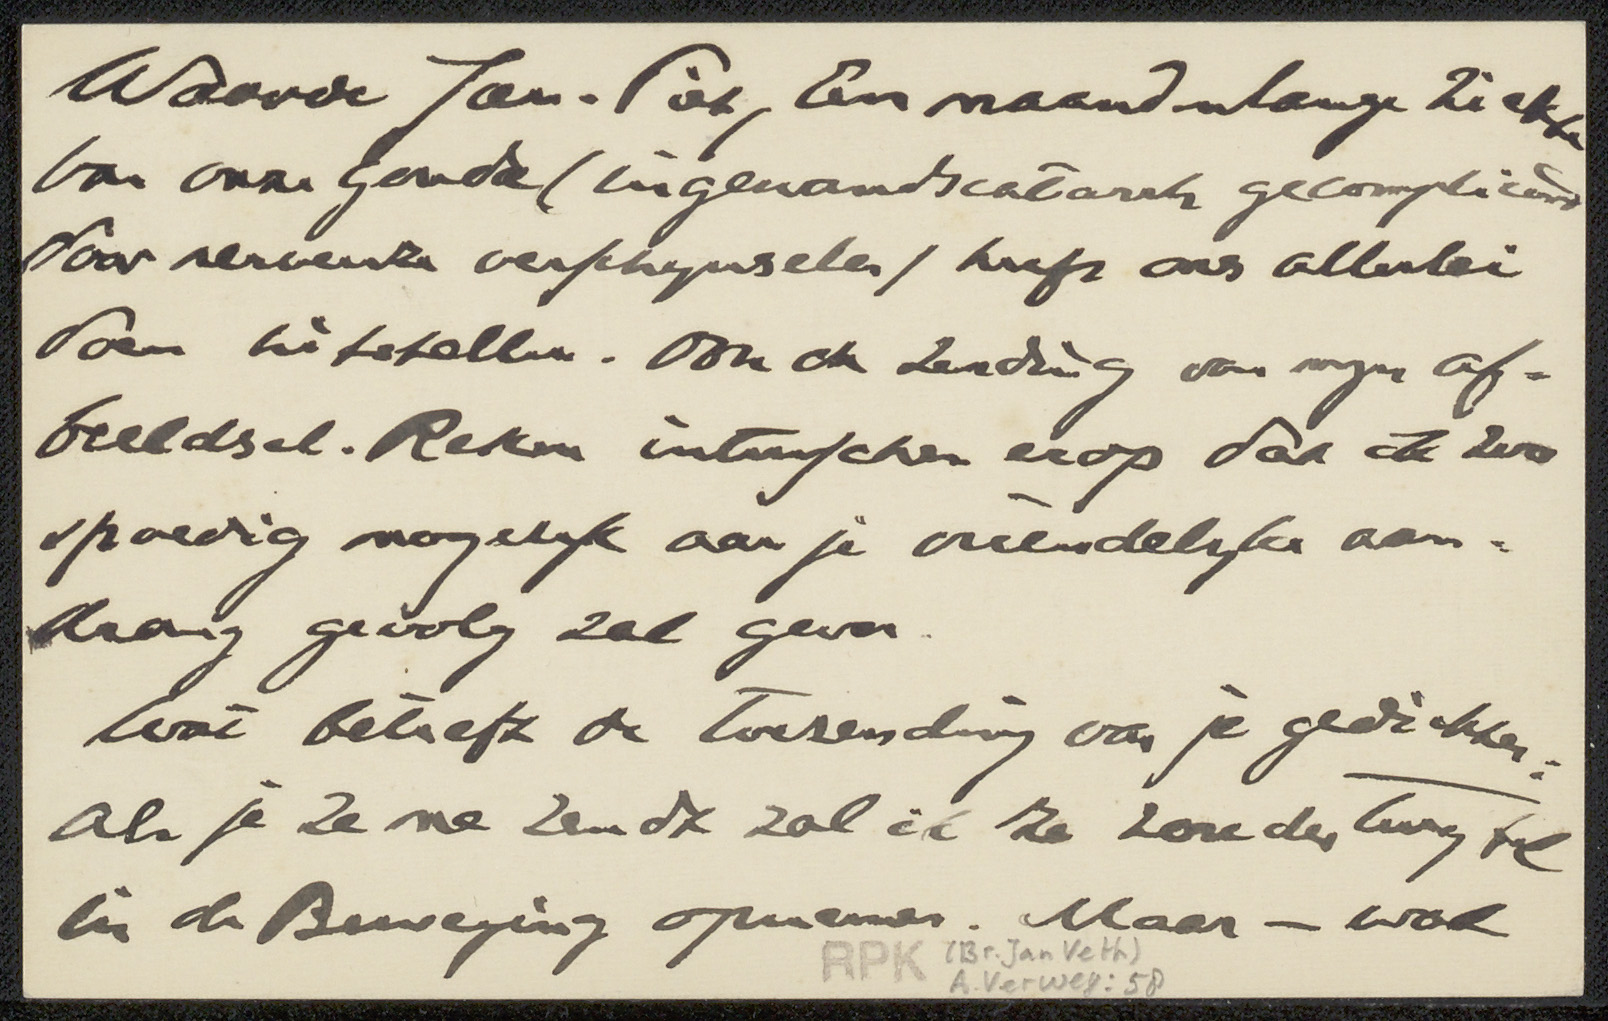 Waarde Jan-Piet, Een maandenlange ziekte
van onze Gonda (ingewandscatarrh gecompliceerd
door nerveuze verschijnselen) heeft ons allerlei
doen uitstellen. Ook de zending van mijn af-
beeldsel. Reken intusschen erop dat ik zoo
spoedig mogelijk aan je vriendelijke aan-
drang gevolg zal geven.
Wat betreft de toezending van je gedichten:
als je ze me zendt zal ik ze zonder twijfel
in de Beweging opnemen. Maar – wat
RPK (Br. Jan Veth)
A. Verwey: 58